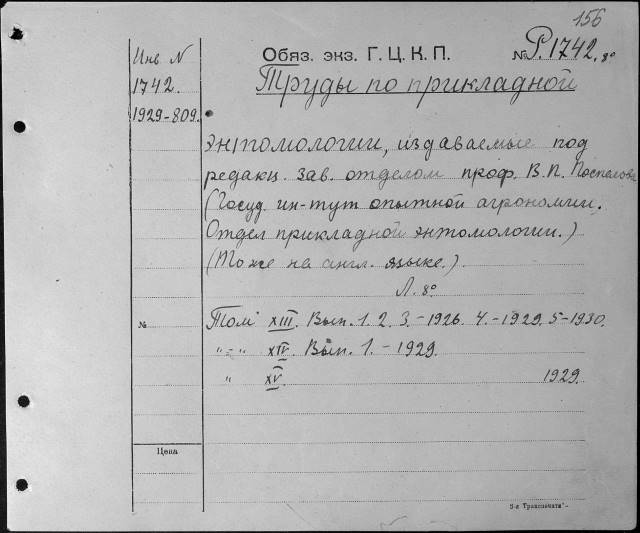 156
Инв N
1742.
1929-809.
Обяз. экз. Г. Ц. К. П.
№ Р.1742. 8º
Труды по прикладной
энтомологии, издаваемые под
редакц. зав. отделом проф. В.П. Поспелова
(Госуд. ин-тут опытной агрономии.
Отдел прикладной энтомологии.)
(То же на англ. языке.)
Л. 8º
№
Том XIII. Вып. 1. 2. 3.-1926. 4.-1929. 5-1930.
"-" XIV. Вып. 1.-1929.
" XV. 1929.
Цена
5-я Транспечати